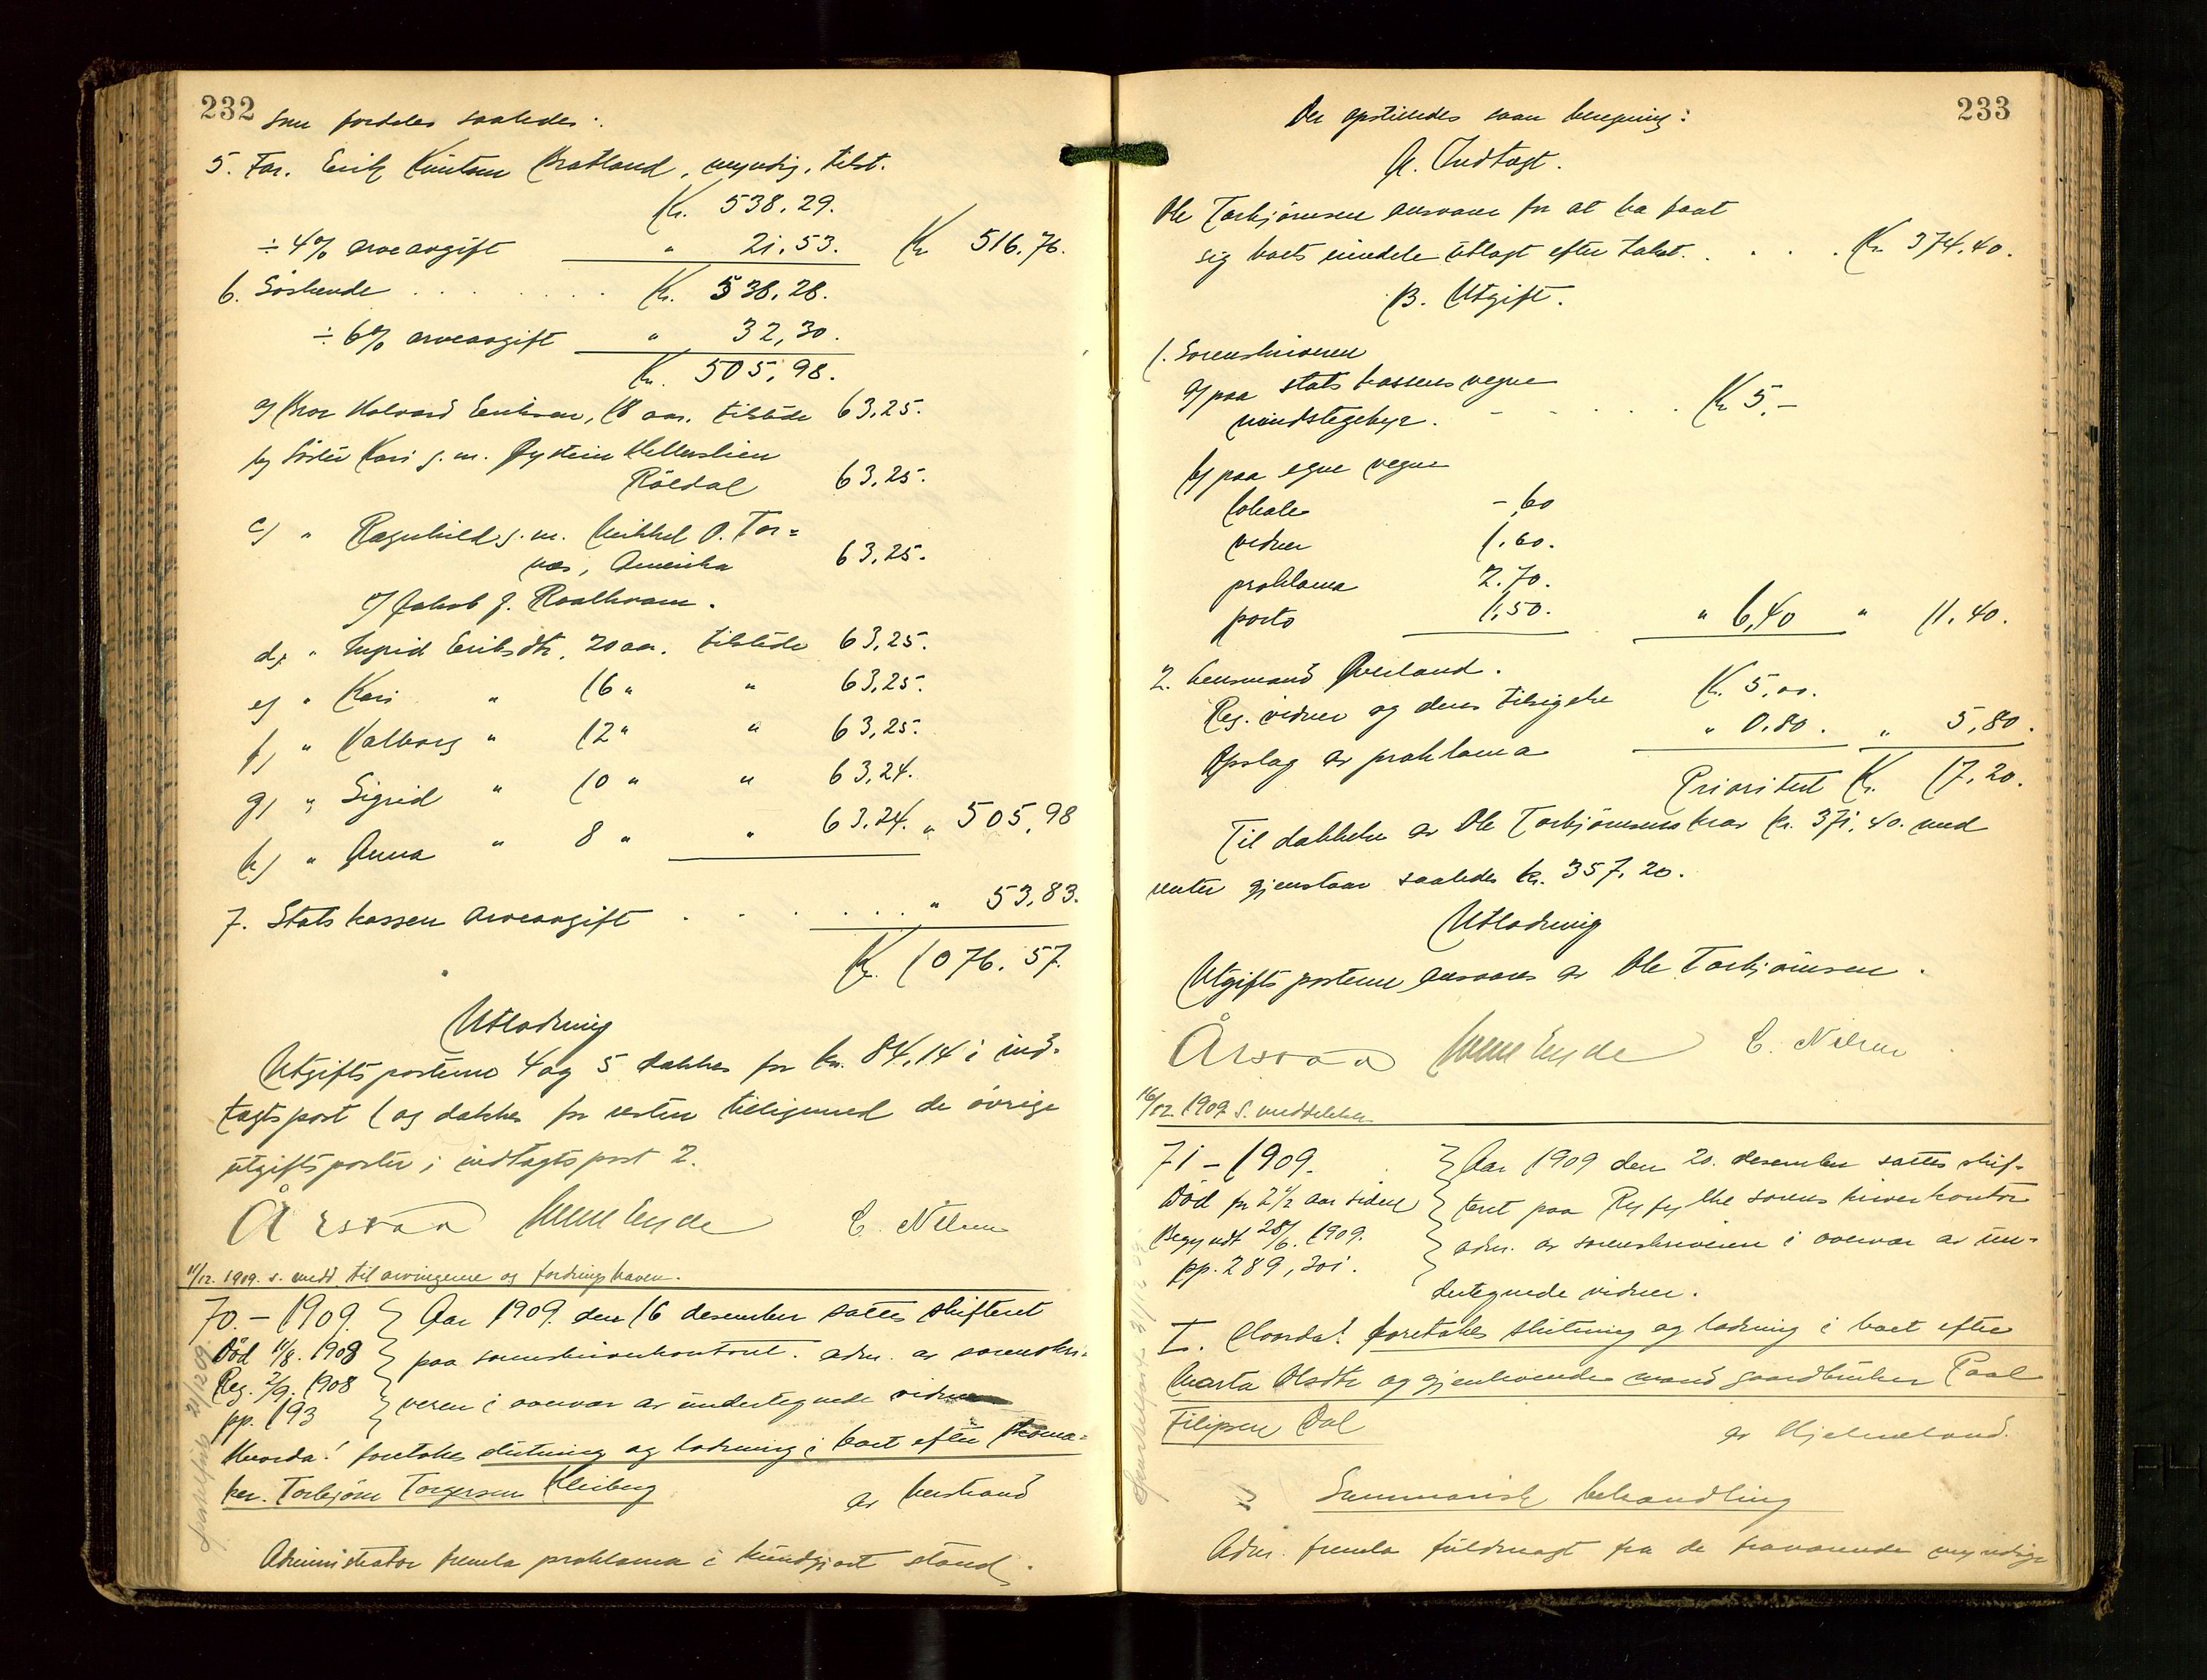 232
som fordeles saaledes:
5. Far. Erik Knutsen Bratland, myndig, tilst.
Kr. 538.29.
÷ 4% arveavgift " 21.53. Kr 516.76.
6. Søskende . . . . . . . Kr. 538.28.
÷ 6% arveavgift " 32,30.
Kr. 505,98.
a) Bror Halvard Eriksen, 18 aar. tilstede 63,25.
b) Søster Kari g.m. Øystein
Röldal 63,25.
c) " Ragnhild g.m. Mikkel O. Tor=
næs, Amerika 63,25.
v/ Jakob J. Raalkvam.
d) " Ingrid Eriksdtr. 20 aar. tilstede 63,25.
e) " Kari " 16 " " 63,25.
f) " Valborg " 12 " " 63,25.
g) " Sigrid " 10 " " 63,24.
h) " Anna " 8 " " 63.24. " 505,98
7. Statskassen arveavgift . . . . . . " 53,83.
Kr. 1076.57.
Utlodning
Utgiftsposterne 4 og 5 dækkes for kr. 84,14 i ind-
tægtspost 1 og dækkes for resten tilligemed de övrige
utgiftsposter i indtægtspost 2.
Årsvaa C. Nilsen
11/12. 1909. s. medd. til arvingerne og fordringshaven.
70. - 1909. } Aar 1909 den 16 desember sattes skifteret
Död 11/8. 1908 } paa sorenskriverkontoret. adm. av sorenskri-
Reg. 2/9. 1908 } veren i overvær av undertegnede vidner
pp. 193
Hvorda! foretokes slutning og lodning i boet efter skoma=
ker. Torbjörn Torgersen Kleiberg av
Administrator fremla proklama i kundgjort stand.
233
Der opstilledes saan beregning:
A. Indtægt.
Ole Torbjörnsen ansvarer for at ha faat
sig boets eiendele utlagt efter takst. . . . . Kr 374.40.
B. Utgift.
1. Sorenskriveren
a) paa statskassens vegne
mindstegebyr. - - . . . Kr 5.-
b) paa egne vegne
lokale -,60
vidner 1.60.
proklama 2.70.
porto 1.50. " 6,40 " 11.40.
2. Lensmand Øverland.
Reg. vidner og deres tilsigelse Kr. 5,00.
Opslag av proklama " 0.80. " 5,80.
Prioritert Kr. 17,20.
Til dækkelse av Ole Torbjörnsens krav kr. 371,40. med
renter gjenstaar saaledes kr. 357,20.
Utlodning
Utgiftsposterne ansvares av Ole Torbjörnsen.
Årsvaa C. Nilsen
16/12 1909 s. meddelelse
71 - 1909. } Aar 1909 den 20. desember sattes skif-
Död for 2 1/2 aar siden } teret paa Ryfylke sorenskriverkontor
Begyndt 28/6. 1909. } adm. av sorenskriveren i overvær av un-
pp. 289, 301. dertegnede vidner.
I. Hvorda! foretokes slutning og lodning i boet efter
Marta Olsdtr og gjenlevende mand gaardbruker Paal
Filipsen Dal av Hjelmeland.
Summarisk behandling
Adm. fremla fuldmagt fra de fraværende myndige